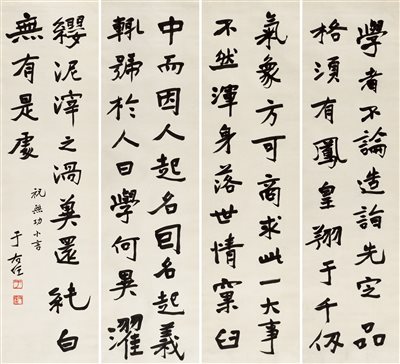 學者不論造詣先定品
格須有鳳皇翔于千仞
氣象方可商求此一大事
不然渾身落世情窠臼
中而因人起名因名起義
輒號於人曰學何異濯
纓泥滓之渦冀還純白
無有是處
祝無功小言
于右任